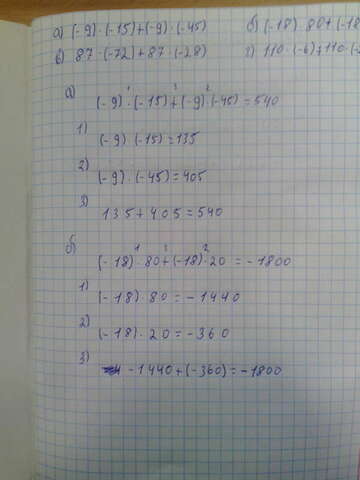 а) (-9)·(-15)+(-9)·(-45) б) (-18)·80+(-18
в) 87·(-72)+87·(-28) г) 110·(-6)+110·(-
а)
1 3 2
(-9)·(-15)+(-9)·(-45)=540
1)
(-9)·(-15)=135
2)
(-9)·(-45)=405
3)
135+405=540
б)
1 3 2
(-18)·80+(-18)·20=-1800
1)
(-18)·80=-1440
2)
(-18)·20=-360
3)
-1440+(-360)=-1800